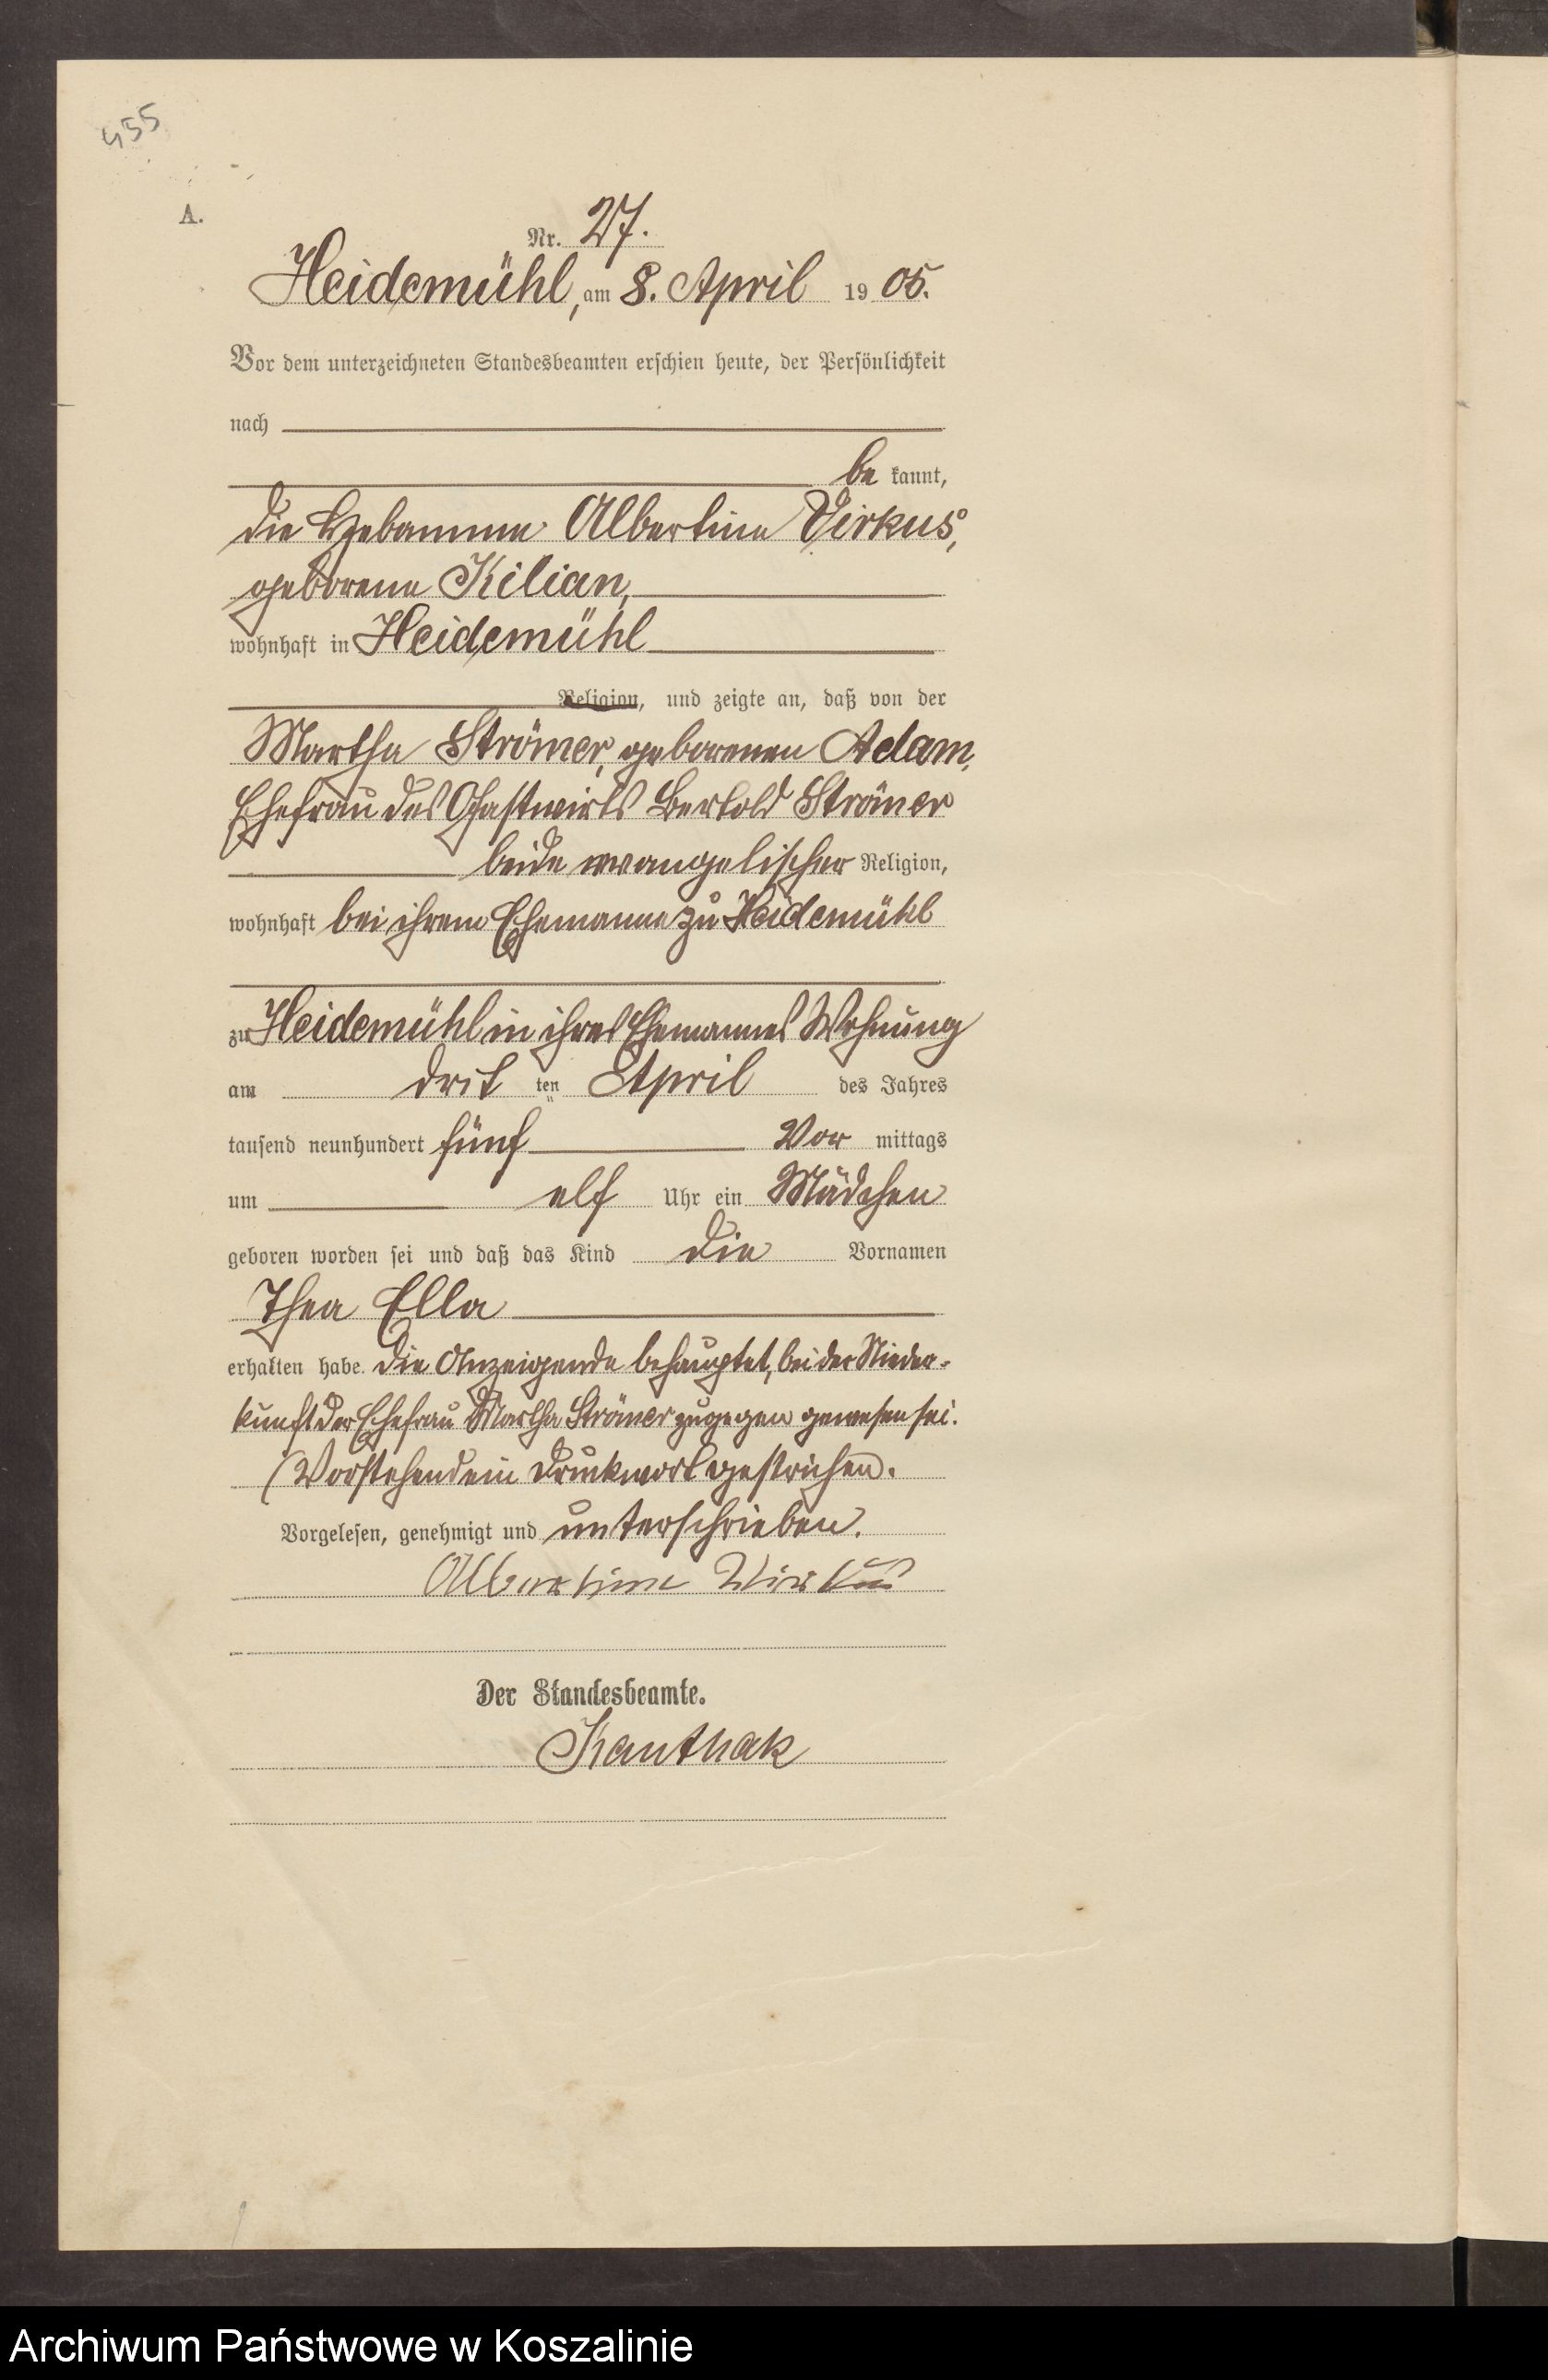 455
A.
Nr. 27.
Heidemühl, am 8. April 1905.
Vor dem unterzeichneten Standesbeamten erschien heute, der Persönlichkeit
nach
be kannt,
die Hebamme Albertine Virkus,
geborene Kilian,
wohnhaft in Heidemühl
Religion, und zeigte an, daß von der
Martha Strömer, geborenen Adam,
Ehefrau des Gastwirts Bertold Strömer
beide evangelischer Religion,
wohnhaft bei ihrem Ehemanne zu Heidemühl
zu Heidemühl in ihres Ehemannes Wohnung
am drit ten April des Jahres
tausend neunhundert fünf Vor mittags
um elf Uhr ein Mädchen
geboren worden sei und daß das Kind die Vornamen
Thea Ella
erhalten habe. Die Anzeigende behauptet, bei der Nieder-
kunft der Ehefrau Martha Strömer zugegen gewesen sei.
(Vorstehend ein Druckwort gestrichen.
Vorgelesen, genehmigt und unterschrieben.
Albertine Wirkus
Der Standesbeamte.
Kanthak
Archiwum Państwowe w Koszalinie